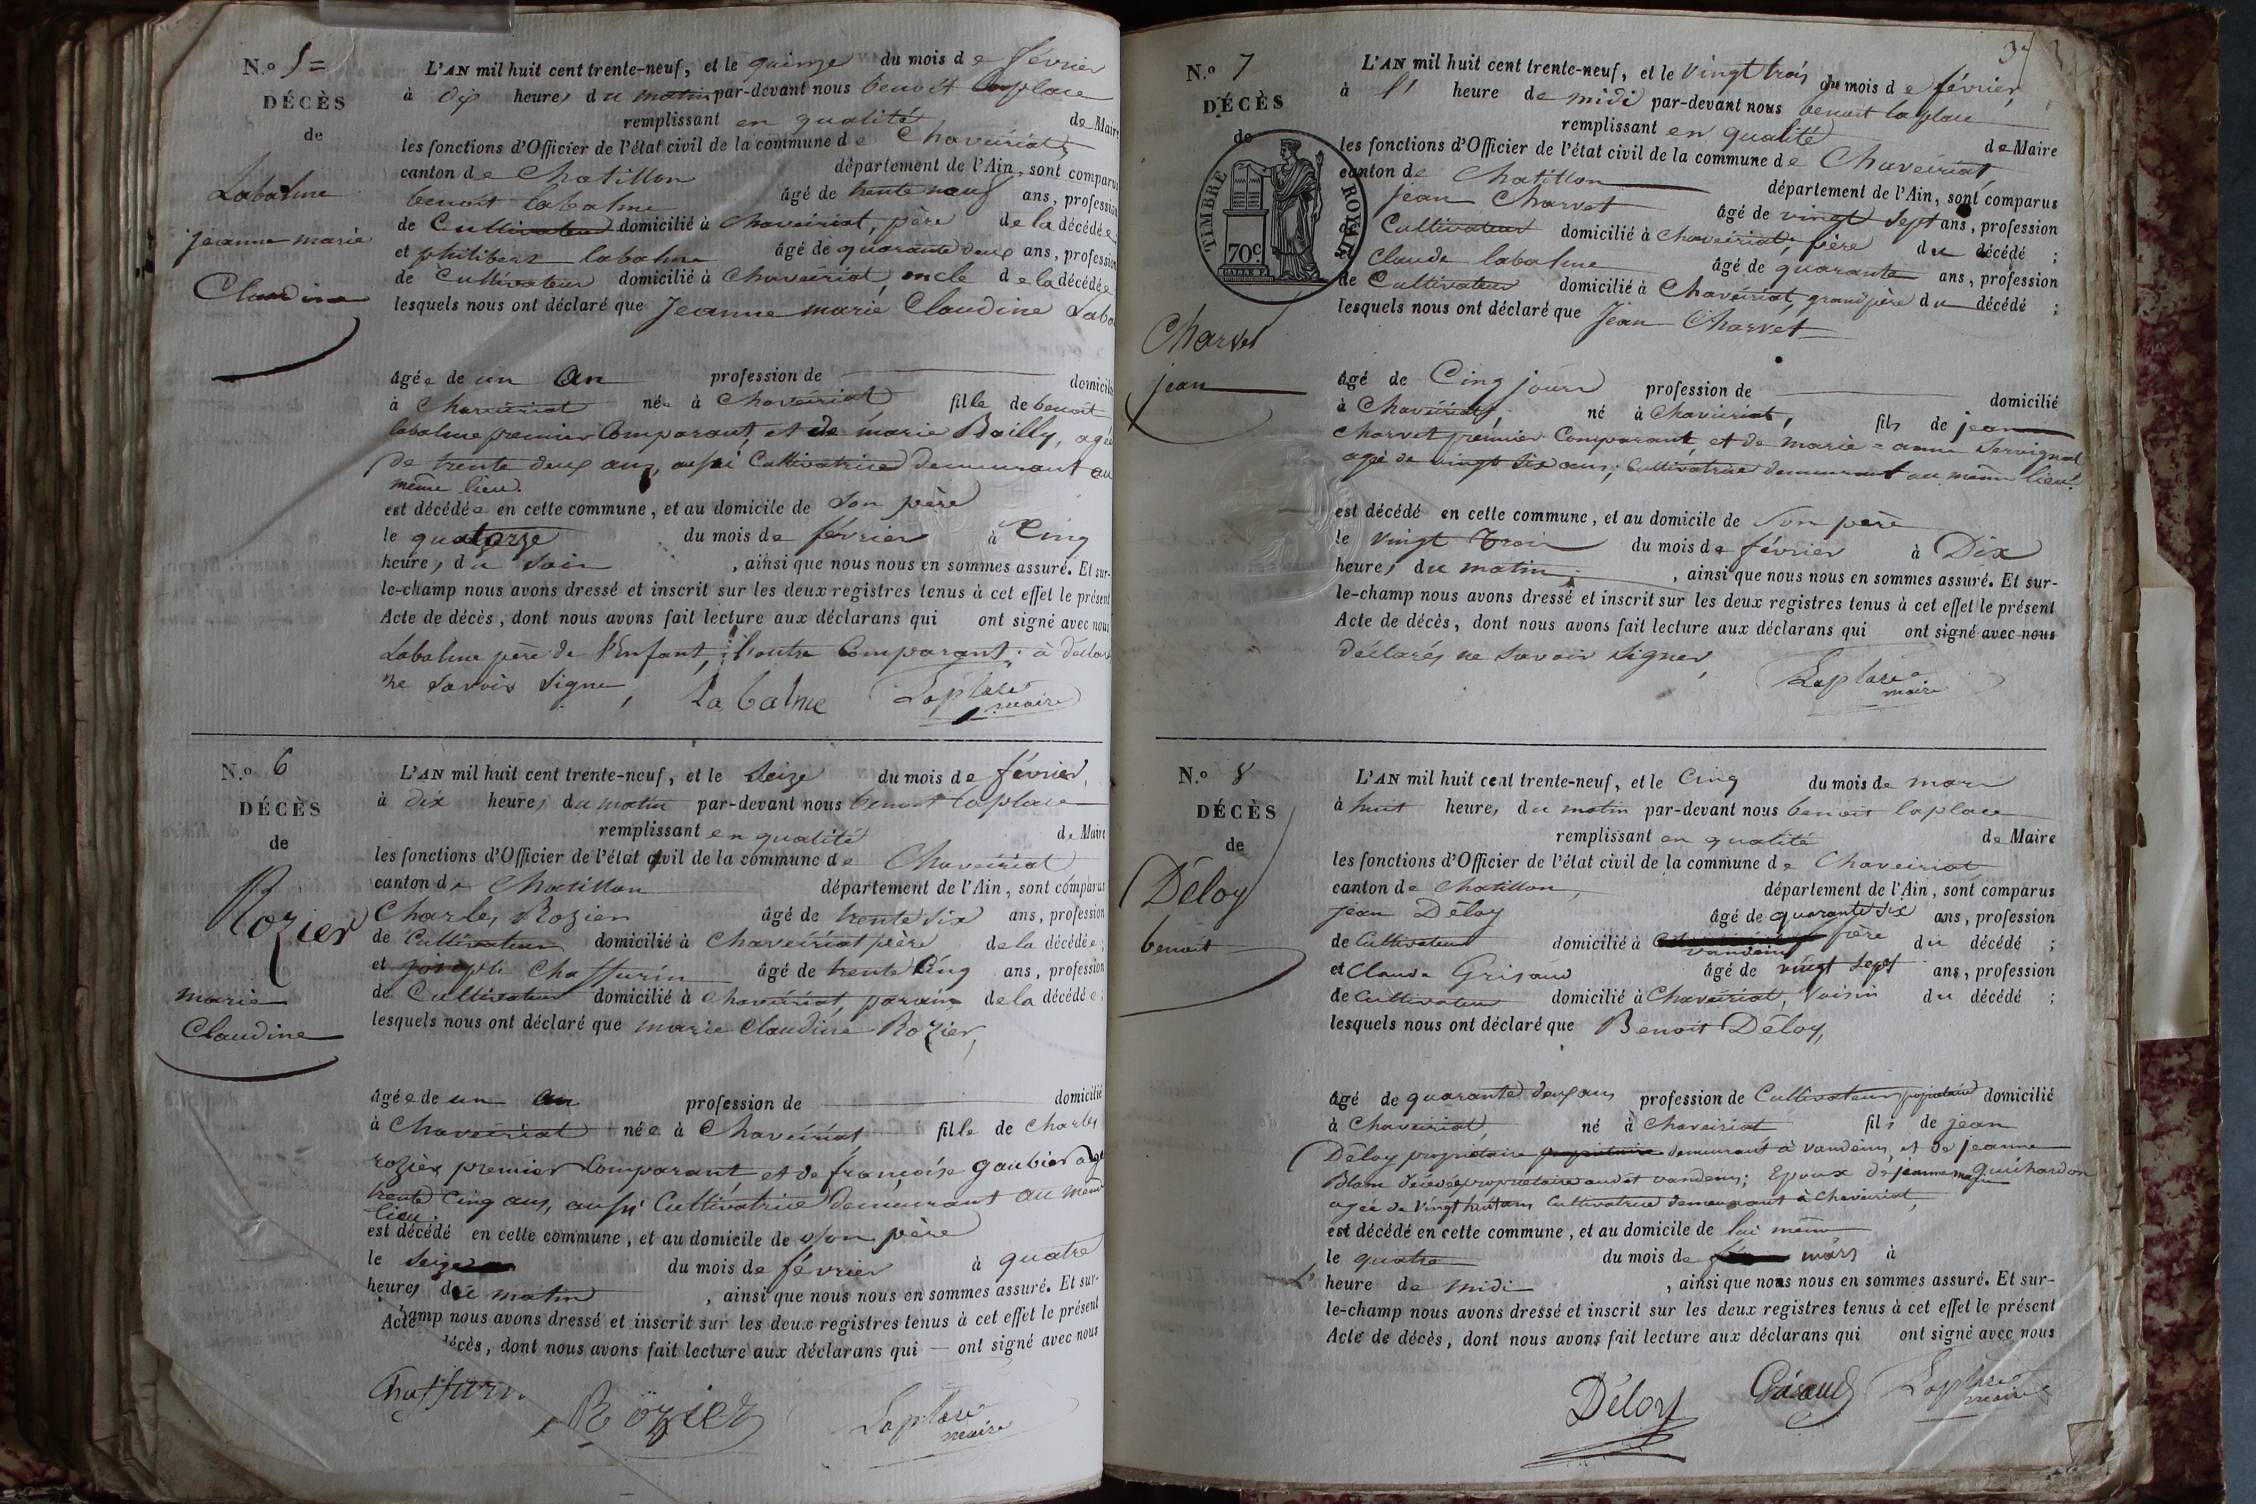 N.o 5 =
DÉCÈS
de
Labalme
jeanne marie
Claudine
L'AN mil huit cent trente-neuf, et le quinze du mois de février
à dix heures du matin par-devant nous benoit laplace
remplissant en qualité de Maire
les fonctions d'Officier de l'état civil de la commune de Chaveiriat,
canton de Chatillon département de l'Ain, sont comparus
benoit labalme âgé de trente neuf ans, profession
de Cultivateur domicilié à Chaveiriat, père de la décédée
et philibert labalme âgé de quarante deux ans, profession
de Cultivateur domicilié à Chaveiriat, oncle de la décédée
lesquels nous ont déclaré que Jeanne marie Claudine Laba
âgée de un an profession de domicilié
à Chaveiriat née à Chaveiriat fille de benoit
labalme premier Comparant, et de marie Bailly, agée
de trente deux ans, aussi Cultivatrice demeurant au
même lieu.
est décédée en cette commune, et au domicile de son père
le quatorze du mois de février à Cinq
heures du soir , ainsi que nous nous en sommes assuré. Et sur-
le-champ nous avons dressé et inscrit sur les deux registres tenus à cet effet le présent
Acte de décès, dont nous avons fait lecture aux déclarans qui ont signé avec nous
Labalme père de l'Enfant, l'autre Comparant à déclaré
ne savoir signe,
La balme Laplace maire
N.o 6
DÉCÈS
de
Rozier
marie
Claudine
L'AN mil huit cent trente-neuf, et le seize du mois de février,
à dix heures du matin par-devant nous benoit laplace
remplissant en qualité de Maire
les fonctions d'Officier de l'état civil de la commune de Chaveiriat
canton de Chatillon département de l'Ain, sont comparus
Charles Rozier âgé de trente six ans, profession
de Cultivateur domicilié à Chaveiriat père de la décédée;
et joseph Chaffurin âgé de trente Cinq ans, profession
de Cultivateur domicilié à Chaveiriat, parain de la décédée;
lesquels nous ont déclaré que marie Claudine Rozier,
âgée de un an profession de domicilié
à Chaveiriat née à Chaveiriat fille de Charles
rozier premier Comparant, et de françoise gaubier agé
trente Cinq ans, aussi Cultivatrice demeurant au même
lieu.
est décédé en cette commune, et au domicile de son père
le seize du mois de février à quatre
heures du matin , ainsi que nous nous en sommes assuré. Et sur-
champ nous avons dressé et inscrit sur les deux registres tenus à cet effet le présent
Acte décès, dont nous avons fait lecture aux déclarans qui — ont signé avec nous
Chaffurin. Rozier Laplace maire
37
N.o 7
DÉCÈS
de
TIMBRE ROYAL
70c
Charvet
jean
L'AN mil huit cent trente-neuf, et le vingt trois du mois de février,
à l' heure de midi par-devant nous benoit laplace
remplissant en qualité de Maire
les fonctions d'Officier de l'état civil de la commune de Chaveiriat,
canton de Chatillon département de l'Ain, sont comparus
jean Charvet âgé de vingt sept ans, profession
Cultivateur domicilié à Chaveiriat, père du décédé ;
et Claude labalme âgé de quarante ans, profession
de Cultivateur domicilié à Chaveiriat, grand père du décédé ;
lesquels nous ont déclaré que Jean Charvet
âgé de Cinq jours profession de domicilié
à Chaveiriat, né à Chaveiriat, fils de jean
Charvet premier Comparant, et de marie = anne Servignat
agé de vingt six ans, Cultivatrice demeurant au même lieu.
est décédé en cette commune, et au domicile de son père
le vingt trois du mois de février à Dix
heures du matin , ainsi que nous nous en sommes assuré. Et sur-
le-champ nous avons dressé et inscrit sur les deux registres tenus à cet effet le présent
Acte de décès, dont nous avons fait lecture aux déclarans qui ont signé avec nous
déclarés ne savoir signer,
Laplace maire
N.o 8
DÉCÈS
de
Déloy
benoit
L'AN mil huit cent trente-neuf, et le Cinq du mois de mars
à huit heures du matin par-devant nous benoit laplace
remplissant en qualité de Maire
les fonctions d'Officier de l'état civil de la commune de Chaveiriat,
canton de Chatillon, département de l'Ain, sont comparus
jean Déloy âgé de quarante six ans, profession
de Cultivateur domicilié à vandeins frère du décédé ;
et Claude Grisaud âgé de vingt sept ans, profession
de Cultivateur domicilié à Chaveiriat, Voisin du décédé ;
lesquels nous ont déclaré que Benoit Déloy,
âgé de quarante deux ans profession de Cultivateur propriétaire domicilié
à Chaveiriat, né à Chaveiriat fils de jean
Déloy propriétaire propriétaire demeurant à vandeins, et de jeanne
Blanc décédée propriétaire audit vandeins; Epoux de jeanne marie Guichardon
agée de Vingt huit ans Cultivatrice demeurant à Chaveiriat,
est décédé en cette commune, et au domicile de lui même
le quatre du mois de mars à
l' heure de midi , ainsi que nous nous en sommes assuré. Et sur-
le-champ nous avons dressé et inscrit sur les deux registres tenus à cet effet le présent
Acte de décès, dont nous avons fait lecture aux déclarans qui ont signé avec nous
Déloy Grisaud Laplace maire